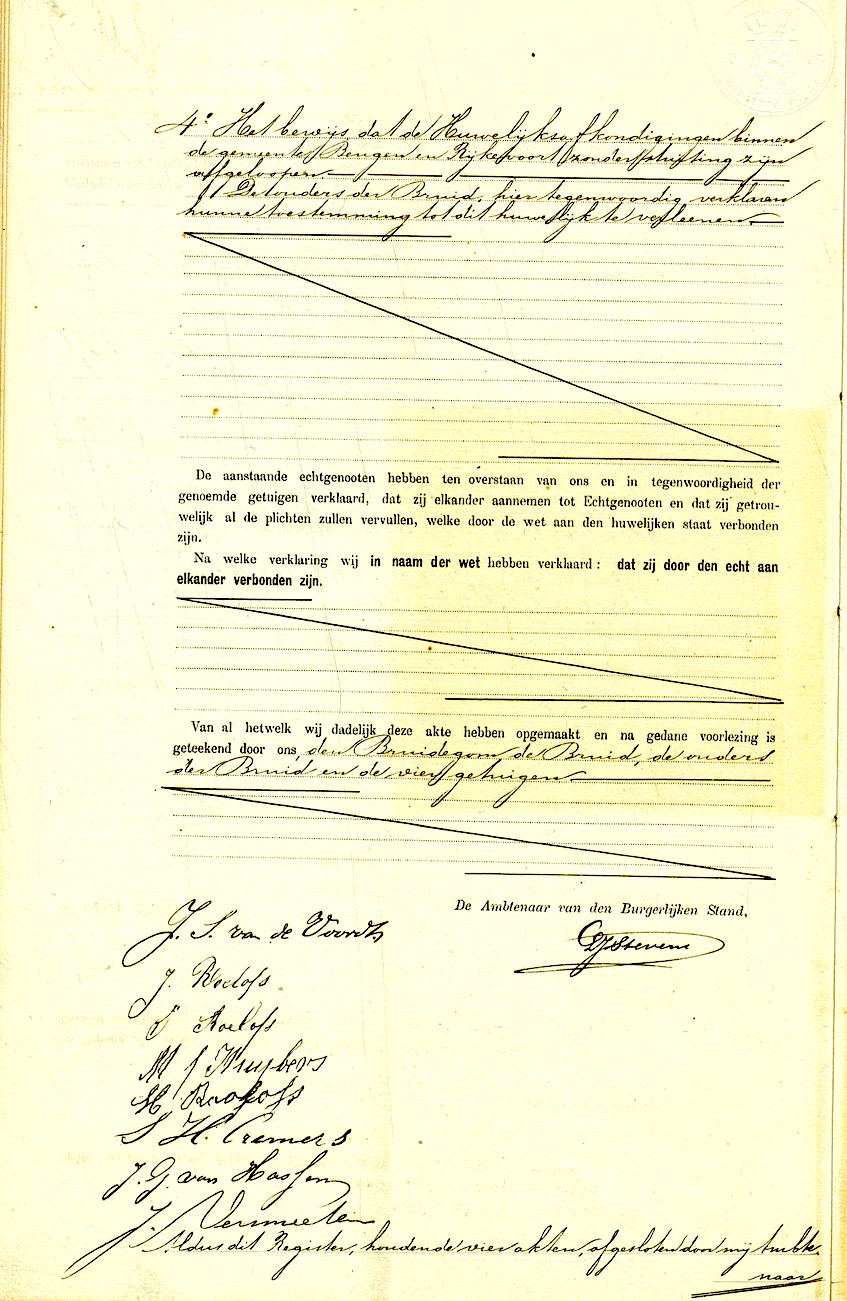 4° Het bewijs, dat de Huwelijksafkondigingen binnen
de gemeente Beugen en Rijkevoort zonder stuiting zijn
afgeloopen.
De ouders der Bruid, hier tegenwoordig verklaren
hunne toestemming tot dit huwelijk te verleenen.
De aanstaande echtgenooten hebben ten overstaan van ons en in tegenwoordigheid der
genoemde getuigen verklaard, dat zij elkander aannemen tot Echtgenooten en dat zij getrou-
welijk al de plichten zullen vervullen, welke door de wet aan den huwelijken staat verbonden
zijn.
Na welke verklaring wij in naam der wet hebben verklaard: dat zij door den echt aan
elkander verbonden zijn.
Van al hetwelk wij dadelijk deze akte hebben opgemaakt en na gedane voorlezing is
geteekend door ons, den Bruidegom, de Bruid, de ouders
der Bruid en de vier getuigen
De Ambtenaar van den Burgerlijken Stand,
J. S. van de Voordt
Stevens
J. Roelofs
Roelofs
M J Kuijbers
H Roelofs
S H. Cremers
J. G. van Hassen
J. Vermeulen
Aldus dit Register, houdende vier akten, afgesloten door mij Ambte-
naar